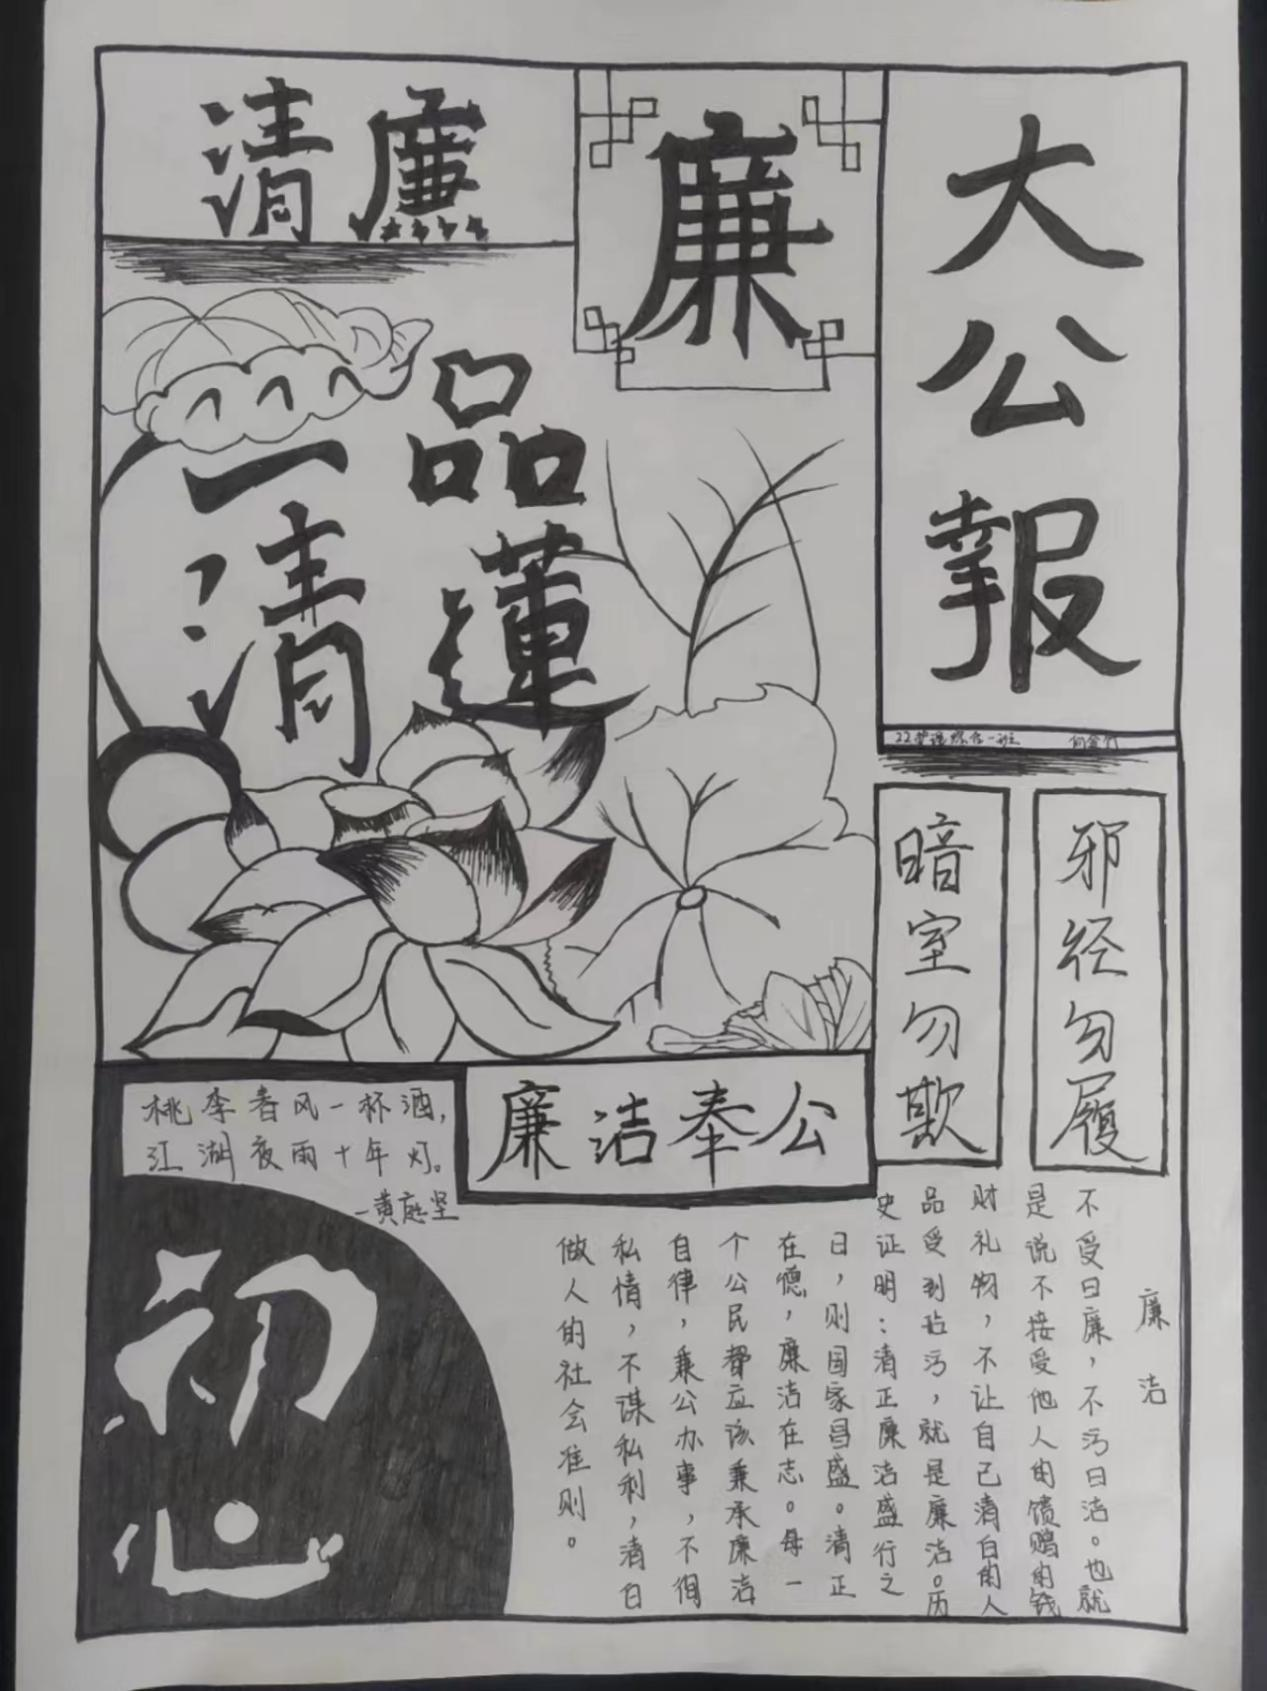 大公報
22
班
廉
清廉
一品
清蓮
邪经勿履
暗室勿欺
廉洁奉公
桃李春风一杯酒，
江湖夜雨十年灯。
—黄庭坚
初心
廉洁
不受曰廉，不污曰洁。也就
是说不接受他人的馈赠的钱
财礼物，不让自己清白的人
品受到玷污，就是廉洁。历
史证明：清正廉洁盛行之
日，则国家昌盛。清正
在德，廉洁在志。每一
个公民都应该秉承廉洁
自律，秉公办事，不徇
私情，不谋私利，清白
做人的社会准则。